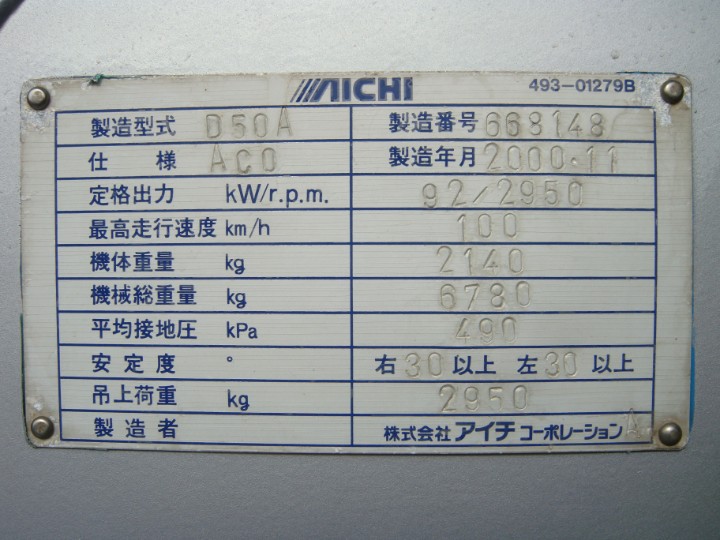 AICHI 493-01279B
製造型式 D50A 製造番号 668148
仕様 AC0 製造年月 2000・11
定格出力 kW/r.p.m. 92/2950
最高走行速度 km/h 100
機体重量 kg 2140
機械総重量 kg 6780
平均接地圧 kPa 490
安定度 ° 右30以上 左30以上
吊上荷重 kg 2950
製造者 株式会社アイチコーポレーション A